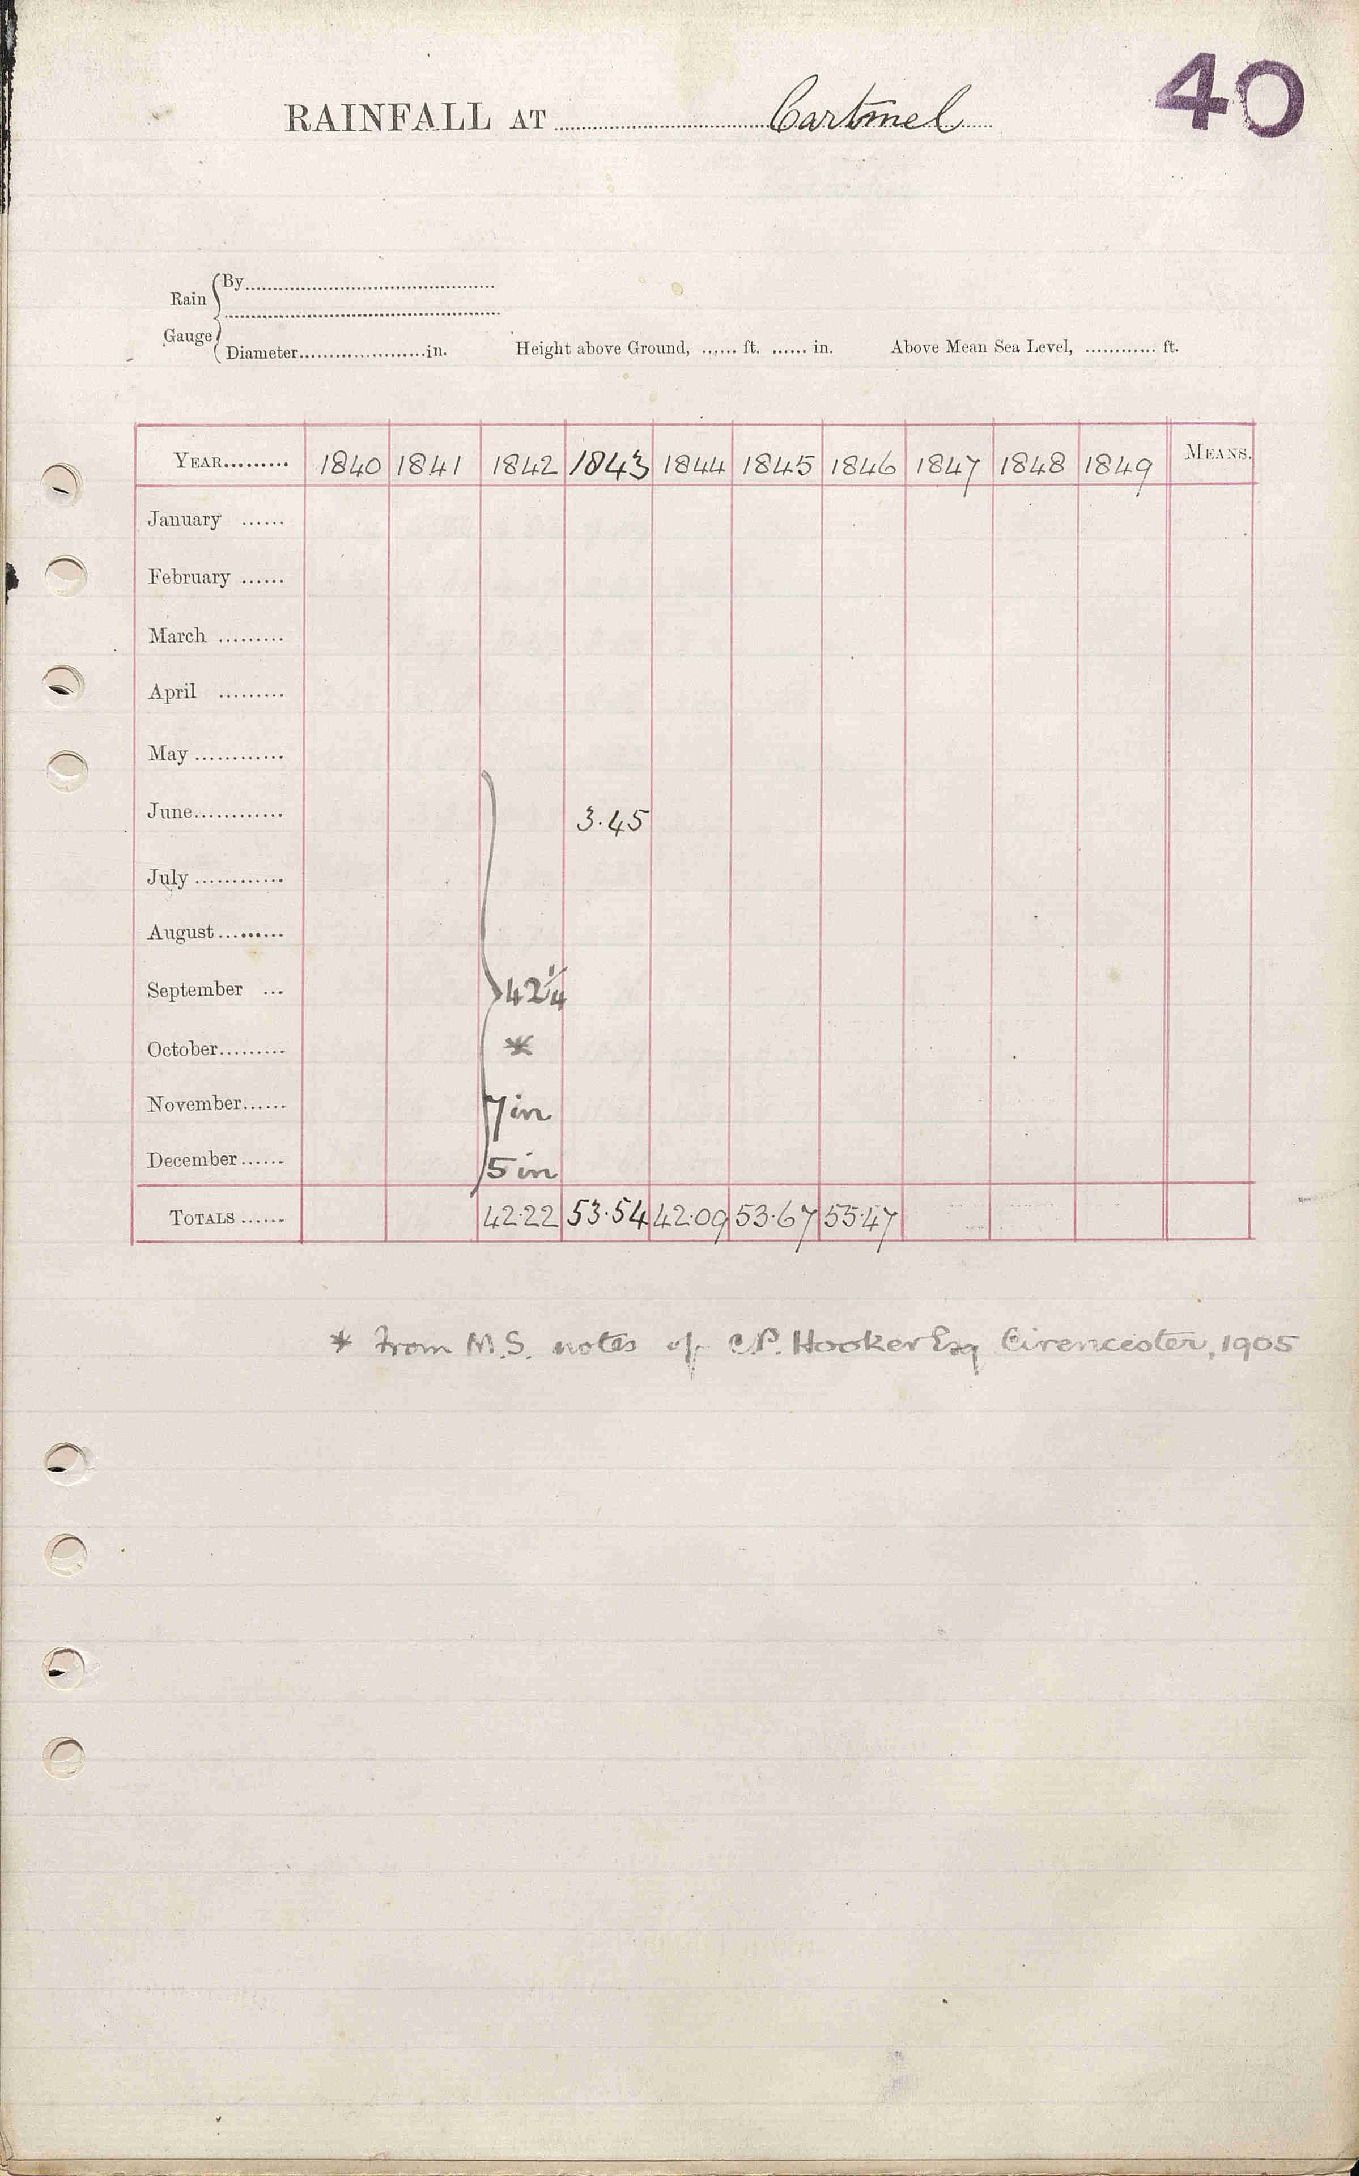 40
RAINFALL AT Cartmel
Rain Gauge
By
Diameter in. Height above Ground, ft. in. Above Mean Sea Level, ft.
YEAR 1840 1841 1842 1843 1844 1845 1846 1847 1848 1849 MEANS.
January
February
March
April
May
June 3.45
July
August
September 42¼
October *
November 7 in
December 5 in
TOTALS 42.22 53.54 42.09 53.67 55.47
* From M.S. notes of C.P. Hooker Esq Cirencester, 1905